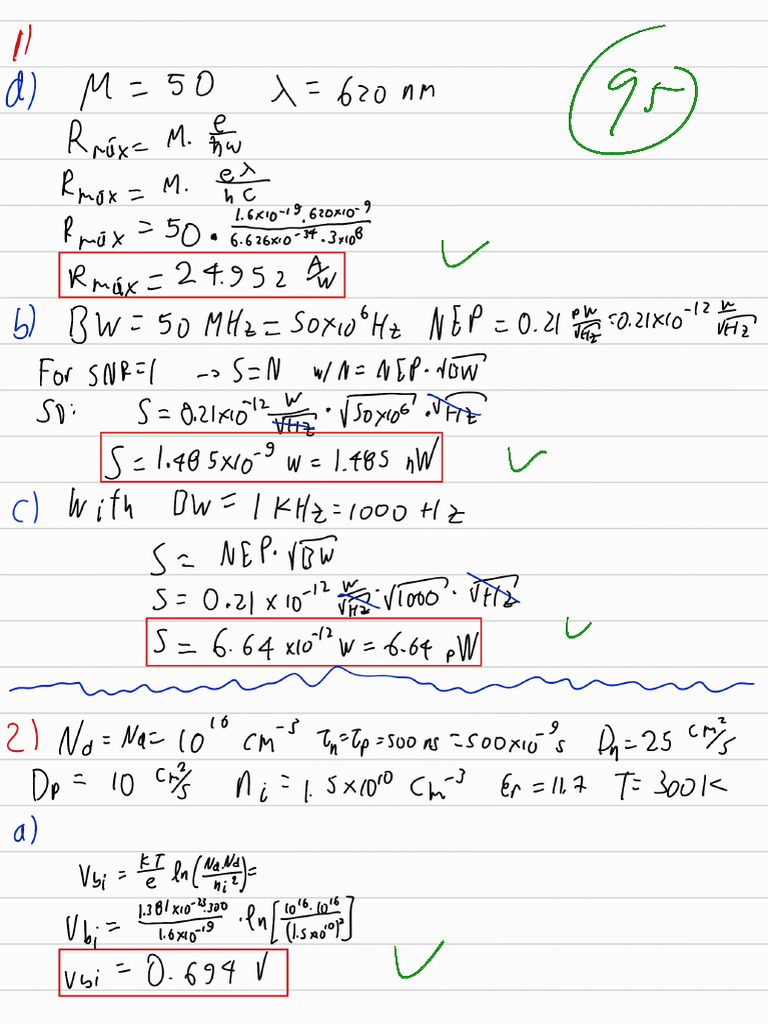 1)
95
d) M = 50 λ = 620 nm
Rmáx = M. e/ħω
Rmáx = M. eλ/hc
Rmáx = 50 · 1.6x10^-19 . 620x10^-9 / 6.626x10^-34 . 3x10^8
Rmáx = 24.952 A/W
b) BW = 50 MHz = 50x10^6 Hz NEP = 0.21 pW/√Hz = 0.21x10^-12 W/√Hz
For SNR=1 -> S=N w/ N = NEP·√BW
SO: S = 0.21x10^-12 W/√Hz · √50x10^6 · √Hz
S = 1.485x10^-9 W = 1.485 nW
c) With BW = 1 KHz = 1000 Hz
S = NEP·√BW
S = 0.21 x10^-12 W/√Hz · √1000 · √Hz
S = 6.64 x10^-12 W = 6.64 pW
2) Nd = Na = 10^16 cm^-3 τn = τp = 500 ns = 500x10^-9 s Dn = 25 cm²/s
Dp = 10 cm²/s ni = 1.5x10^10 cm^-3 εr = 11.7 T = 300 K
a)
Vbi = KT/e ln(Na.Nd/ni²) =
Vbi = 1.381x10^-23.300/1.6x10^-19 · ln[10^16.10^16/(1.5x10^10)²]
Vbi = 0.694 V